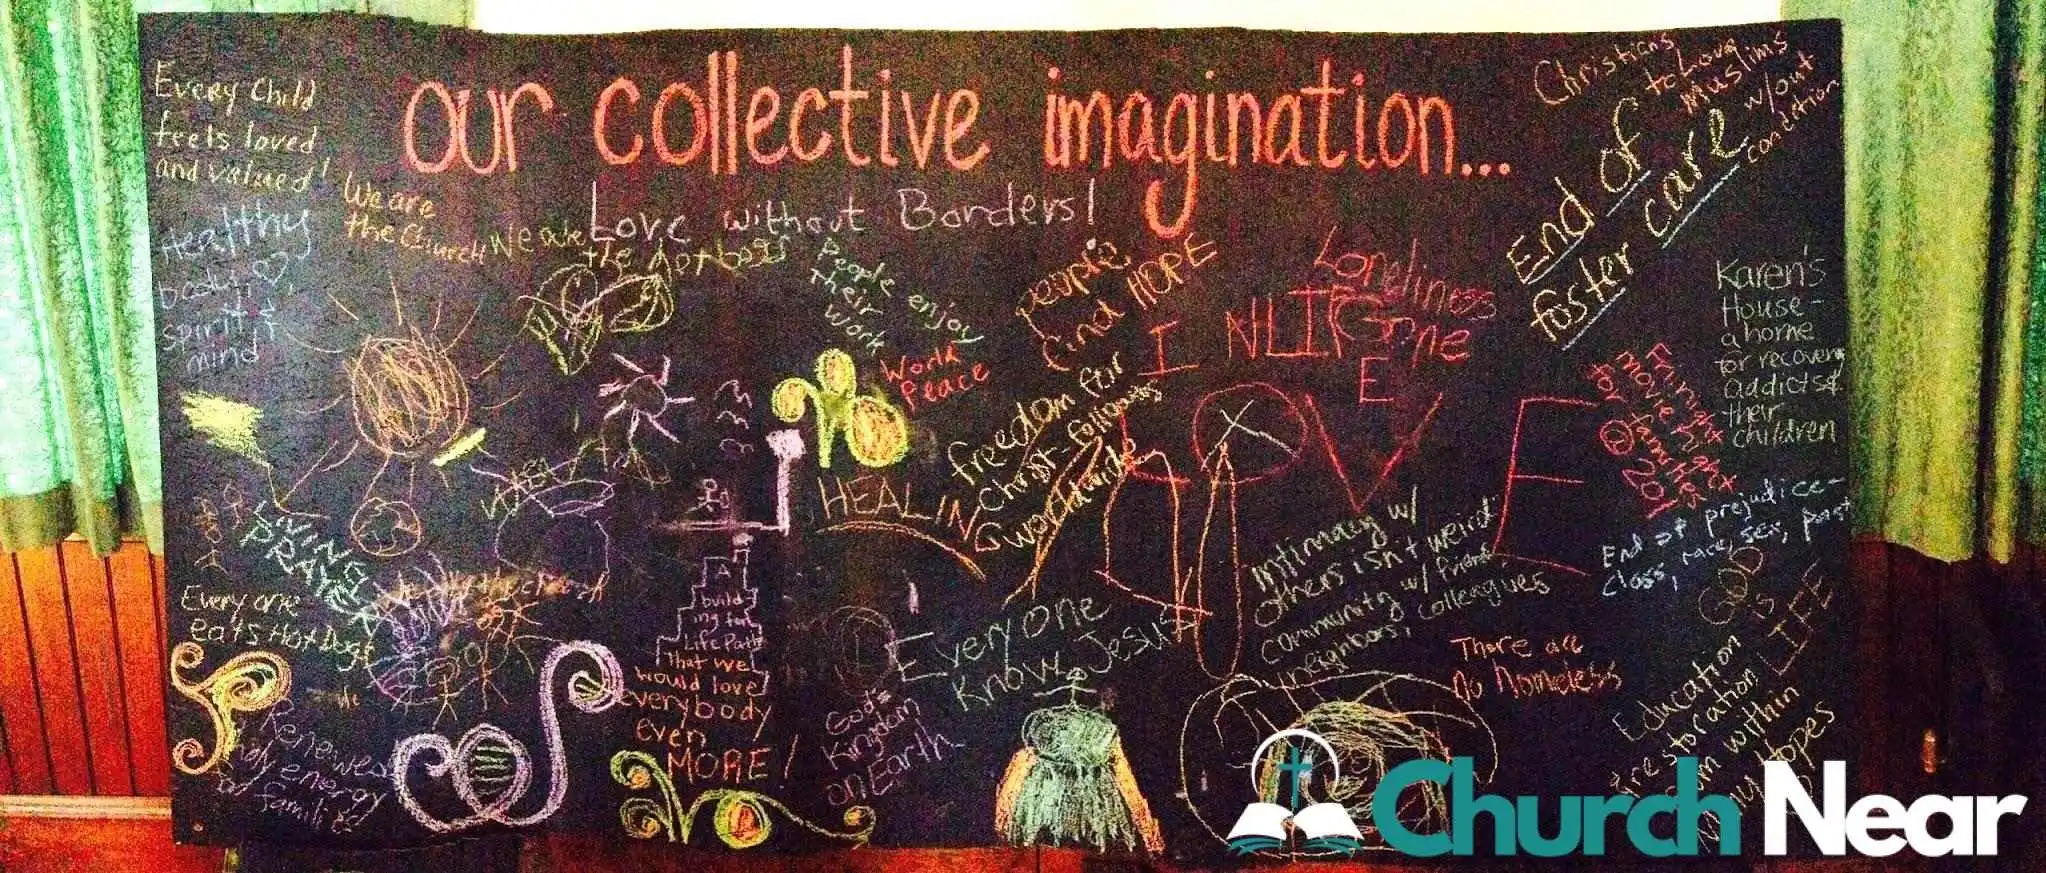 our collective imagination...
Every Child
feels loved
and valued!
Healthy
body, ♡,
spirit &
mind
We are
the Church
We are
the
Love without Borders!
People enjoy
their
work
World
Peace
People
find HOPE
Loneliness
gone
I
LOVE
Christians
to Love
Muslims
w/out
condition
End of
foster care
Karen's
House -
a home
for recovery
addicts &
their
children
movie night
for families
2015
End of prejudice -
class, race, sex, past
GOD
is
LIFE
HEALING
freedom for
Christ-followers
worldwide
Intimacy w/
others isn't weird.
community w/ friends,
neighbors, colleagues
There are
no homeless
Everyone
Know Jesus
LIVING
PRAYER
Everyone
eats Hot Dogs
A
build
ing for
Life Path
That we
would love
everybody
even
MORE!
God's
Kingdom
on Earth
Renewed
energy
families
Education
restoration
from within
my Hopes
Church Near